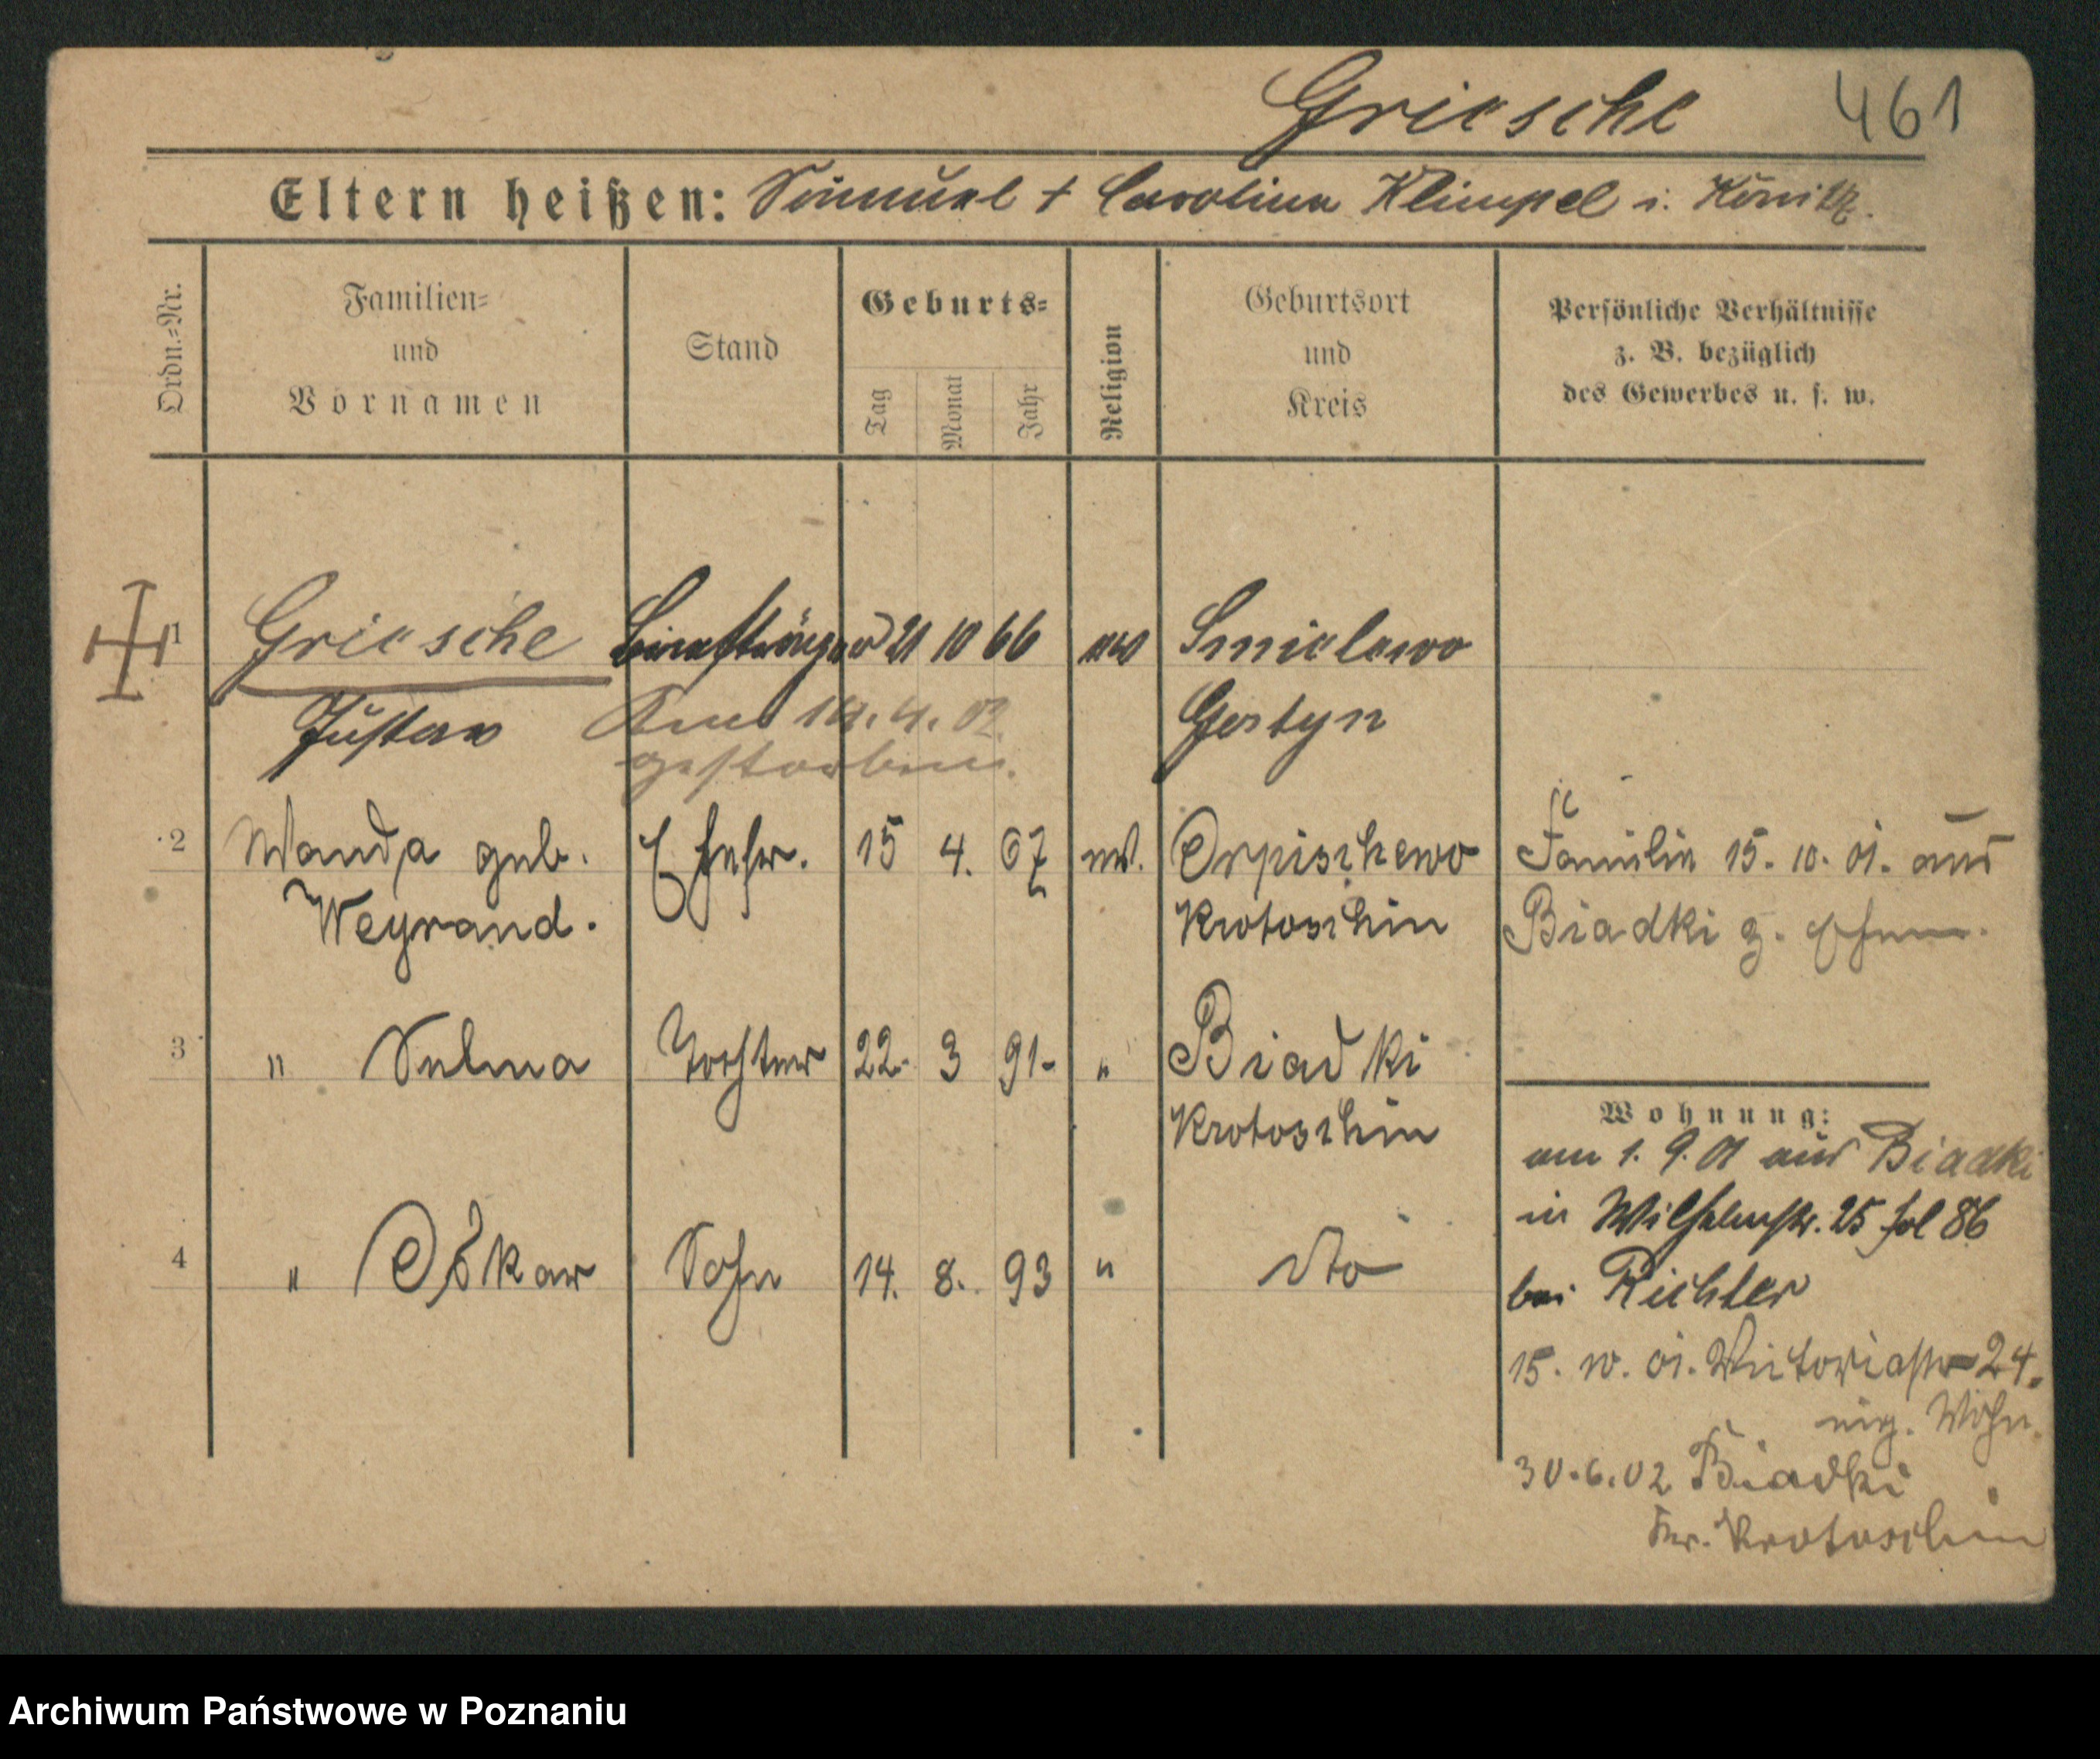 Griesche 461
Eltern heißen: Samuel + Carolina Klimpel i. Könitz.
Ordn.-Nr.
Familien-
und
Vornamen
Stand
Geburts-
Tag
Monat
Jahr
Religion
Geburtsort
und
Kreis
Persönliche Verhältnisse
z. B. bezüglich
des Gewerbes u. s. w.
1 Griesche Briefträger 21 10 66 ev Smielowo
Gustav Gostyn
Am 14. 4. 02.
gestorben.
2 Wanda geb. Ehefr. 15 4. 67 ev. Orpischewo
Weyrand. Krotoschin
Familie 15. 10. 01. aus
Biadki z. Ehem.
3 " Selma Tochter 22. 3 91- " Biadki
Krotoschin
4 " Oskar Sohn 14. 8. 93 " dto
Wohnung:
am 1. 9. 01 aus Biadki
in Wilhelmstr. 25 fol 86
bei Richter
15. 10. 01. Victoriastr 24.
eig. Wohn.
30.6.02 Biadki
Kr. Krotoschin
Archiwum Państwowe w Poznaniu